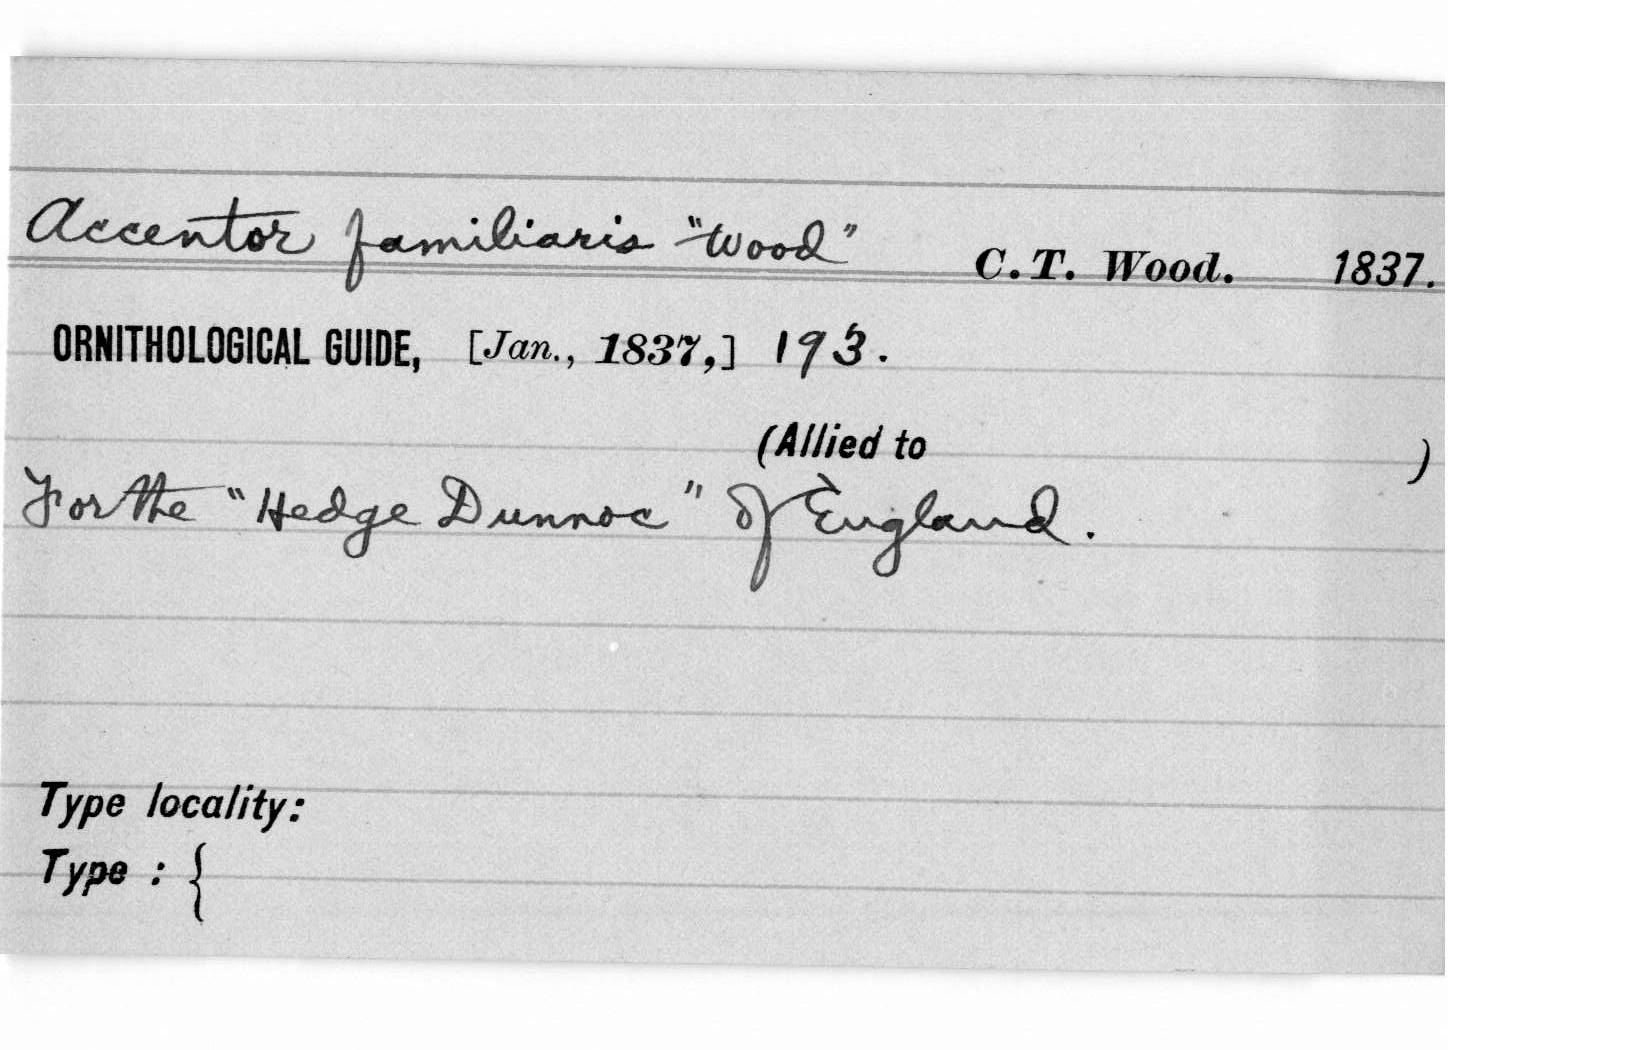 Accentor familiaris "Wood" C. T. Wood. 1837.
ORNITHOLOGICAL GUIDE, [Jan., 1837,] 193.
(Allied to )
For the "Hedge Dunnoc" of England.
Type locality:
Type : {